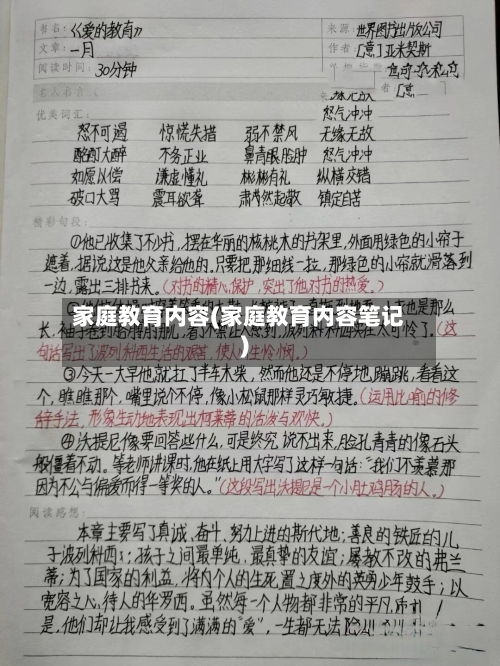 书名：《爱的教育》
来源：世界图书出版公司
文章：一月
作者：[意]亚米契斯
阅读时间：30分钟
怒气冲冲
优美词汇：
怒不可遏 惊慌失措 弱不禁风 无缘无故
酩酊大醉 不务正业 鼻青眼脸肿 怒气冲冲
如愿以偿 谦虚懂礼 彬彬有礼 纵横交错
破口大骂 震耳欲聋 肃然起敬 镇定自苦
精彩句段：
①他已收集了不少书，摆在华丽的核桃木的书架里，外面用绿色的小帘子
遮着，据说这是他父亲给他的。只要把那细线一拉，那绿色的小帘就滑落到
一边，露出三排书来。（对书的精心保护，突出了他对书的热爱。）
家庭教育内容(家庭教育内容笔记
)
句话写出了波列科西生活的艰苦，使人心生怜悯。）
③今天一大早他就扛了半车木柴，然而他还是不停地蹦跳，看看这
个，瞧瞧那个，嘴里说个不停，像小松鼠那样灵巧敏捷。（运用比喻的修
辞手法，形象生动地表现出柯莱蒂的活泼与欢快。）
④沃提尼像要回答些什么，可是终究说不出来，脸孔青青的像石头
般僵着不动。等老师讲课时，他在纸上用大字写了这样一句话：“我们不羡慕那
因为不公与偏爱而得一等奖的人。”（这段写出沃提尼是一个小肚鸡肠的人。）
阅读感想：
本章主要写了真诚、奋斗、努力上进的斯代地；善良的铁匠的儿
子波列科西；孩子之间最单纯、最真挚的友谊；屡教不改的弗兰
蒂；为了国家的利益，将个人的生死置之度外的英勇少年鼓手；以
宽容之心待人的华罗西。虽然每一个人物都非常的平凡，
是，他们却让我感受到了满满的“爱”，一生都无法